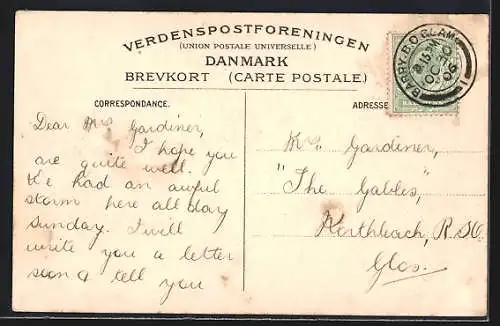 VERDENSPOSTFORENINGEN
(UNION POSTALE UNIVERSELLE)
DANMARK
BREVKORT (CARTE POSTALE.)
BARRY.B.O GLAM
8.15 PM
OC 30
06
1
CORRESPONDANCE.
ADRESSE
Dear Mrs Gardiner,
I hope you
are quite well.
We had an awful
storm here all day
sunday. I will
write you a letter
soon & tell you
Mrs Gardiner,
"The Gables,"
Northleach, R.S.O.
Glos.